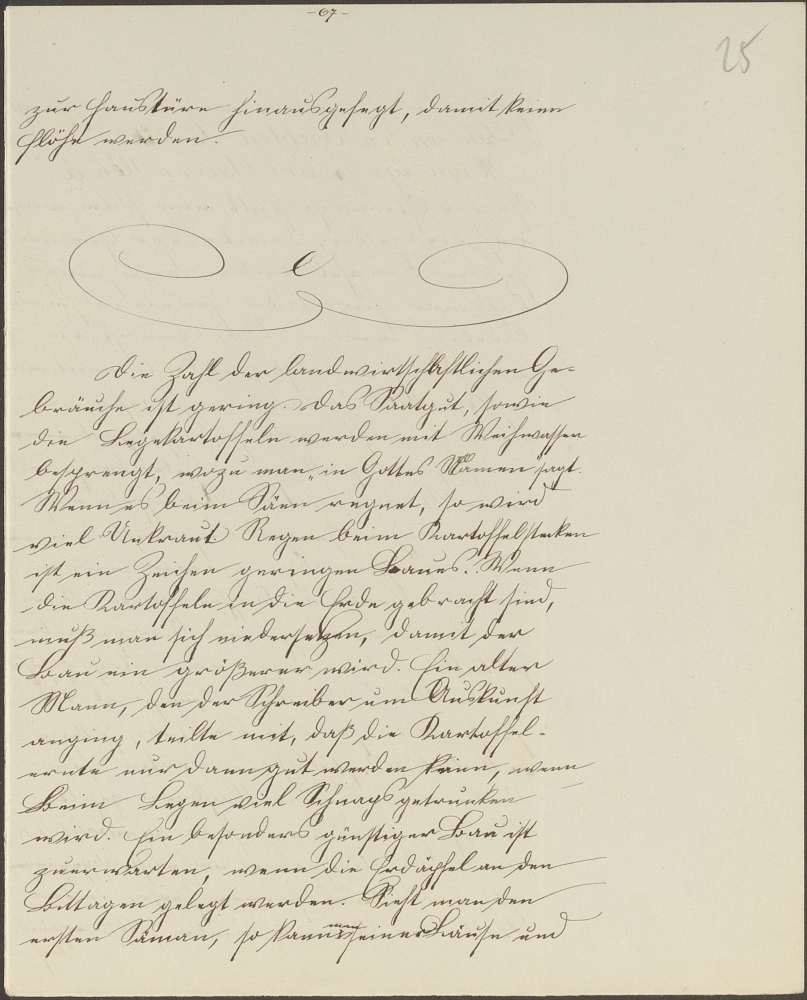 -67-
25
zur Haustüre hinausgefegt, damit keine
Flöhe werden.
e
Die Zahl der landwirtschaftlichen Ge-
bräuche ist gering. Das Saatgut, sowie
die Legekartoffeln werden mit Weihwasser
besprengt, wozu man „in Gottes Namen" sagt.
Wenn es beim Säen regnet, so wird
viel Unkraut. Regen beim Kartoffelstecken
ist ein Zeichen geringen Baues. Wenn
die Kartoffeln in die Erde gebracht sind,
muß man sich niedersetzen, damit der
Bau ein größerer wird. Ein alter
Mann, den der Schreiber um Auskunft
anging, teilte mit, daß die Kartoffel-
ernte nur dann gut werden kann, wenn
beim Legen viel Schnaps getrunken
wird. Ein besonders günstiger Bau ist
zu erwarten, wenn die Erdäpfel an den
Bittagen gelegt werden. Sieht man den
ersten Säman, so kann man seine Läuse und